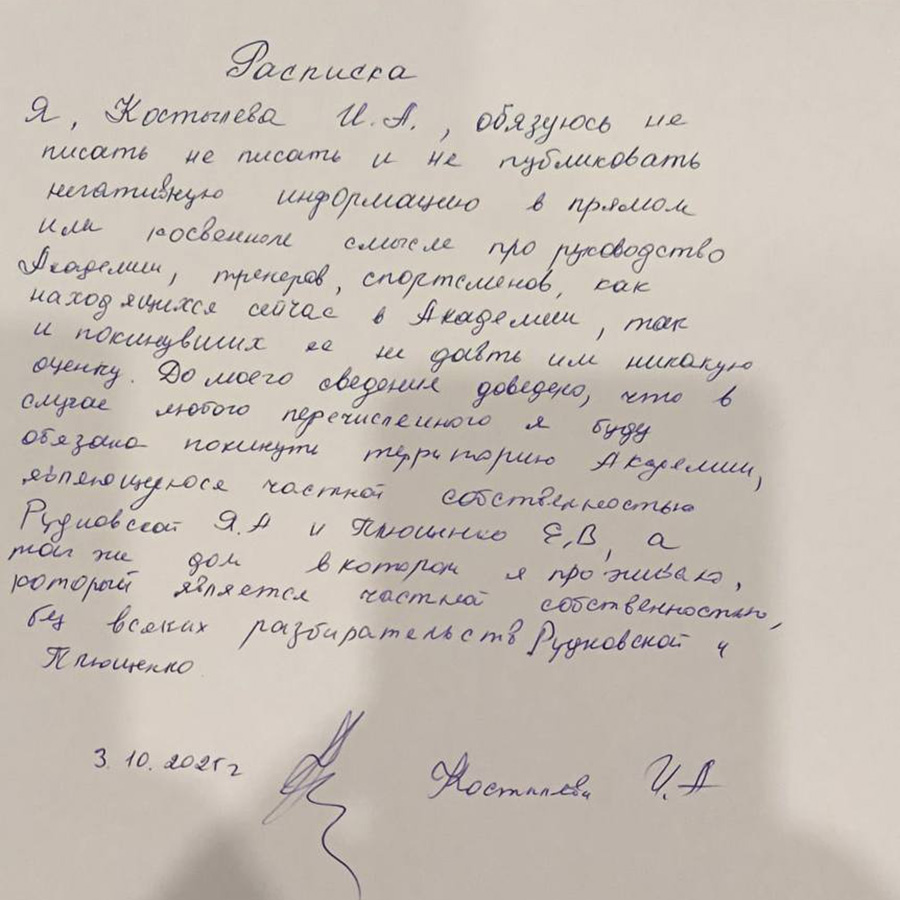 Расписка
Я, Костылева И.А., обязуюсь не
писать не писать и не публиковать
негативную информацию в прямом
или косвенном смысле про руководство
Академии, тренеров, спортсменов, как
находящихся сейчас в Академии, так
и покинувших ее не давть им никакую
оценку. До моего сведения доведено, что в
случае любого перечисленного я буду
обязана покинуть территорию Академии,
являющуюся частной собственностью
Рудковской Я.А и Плющенко Е.В, а
так же дом в котором я проживаю,
который является частной собственностью,
без всяких разбирательств Рудковской и
Плющенко
3.10.2021г Костылева И.А